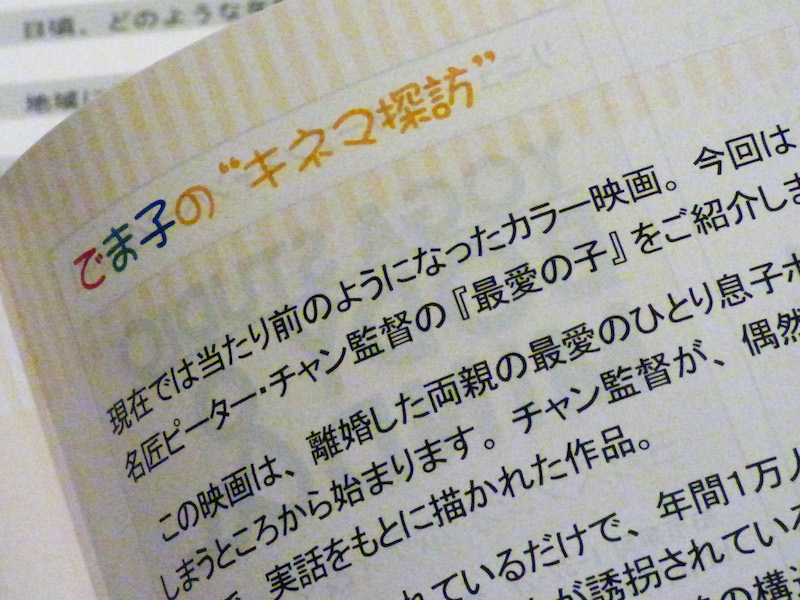 日頃、どのような
地域
でま子の“キネマ探訪”
現在では当たり前のようになったカラー映画。今回は
名匠ピーター・チャン監督の『最愛の子』をご紹介しま
この映画は、離婚した両親の最愛のひとり息子ポ
しまうところから始まります。チャン監督が、偶然
実話をもとに描かれた作品。
れているだけで、年間1万人
が誘拐されている
の構造
YOGA STUDIO